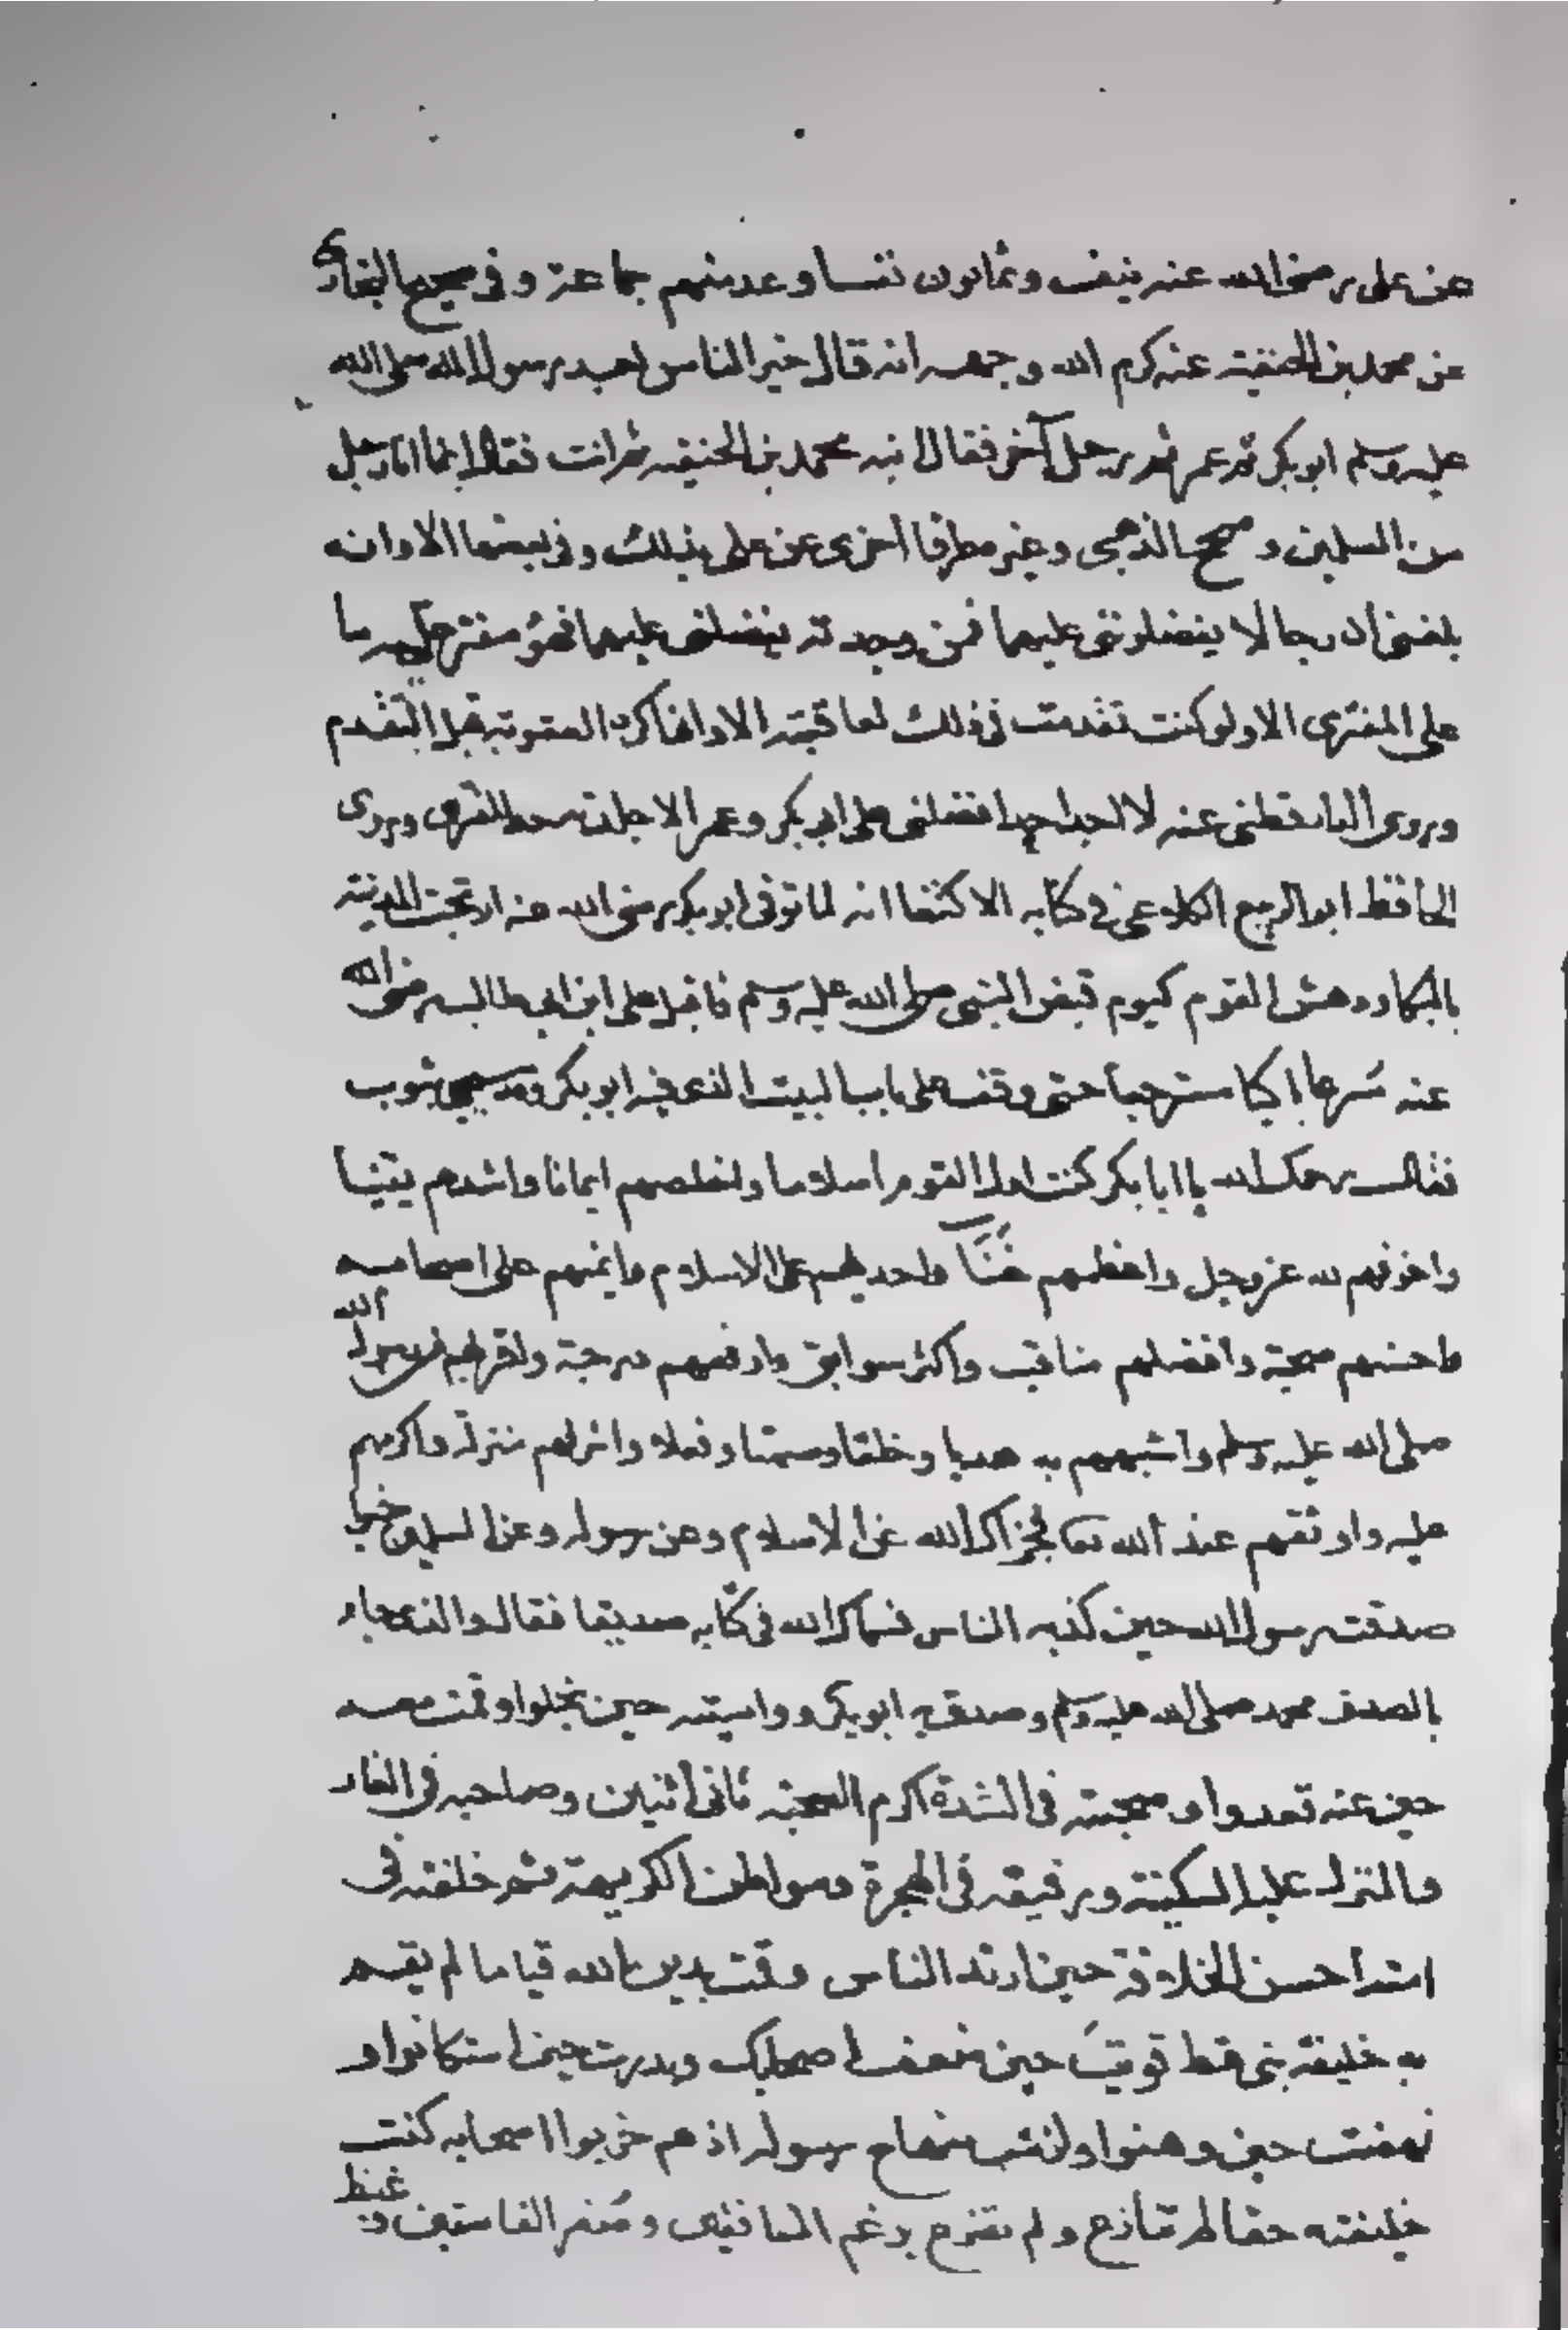 عن على رضى الله عنه نيف وثمانون نفسا وعد منهم جماعة وفى صحيح البخارى
عن محمد بن الحنفية عنه كرم الله وجهه انه قال خير الناس بعد رسول الله صلى الله
عليه وسلم ابو بكر ثم عمر ثم رجل آخر فقال ابنه محمد بن الحنفيه ثم انت فقال انما انا رجل
من المسلمين وصحح الذهبى وغيره طرقا اخرى عن على بذلك وفى بعضها الا وانه
بلغنى ان رجالا يفضلوننى عليهما فمن وجدته يفضلنى عليهما فهو مفتر عليه ما
على المفترى الا ولو كنت تقدمت فى ذلك لعاقبته الا وانى اكره العقوبة قبل التقدم
وروى الدارقطنى عنه لا اجد احدا فضلنى على ابى بكر وعمر الا جلدته حد المفترى وروى
الحافظ ابو الربيع الكلاعى فى كتابه الاكتفا انه لما توفى ابو بكر رضى الله عنه ارتجت المدينة
بالبكا ودهش القوم كيوم قبض النبى صلى الله عليه وسلم فاقبل على ابن ابى طالب رضى الله
عنه مسرعا باكيا مسترجعا حتى وقف على باب البيت الذى فيه ابو بكر وقد سجى بثوب
فقال رحمك الله يا ابا بكر كنت اول القوم اسلاما واخلصهم ايمانا واشدهم يقينا
واخوفهم لله عز وجل واعظمهم غَنَاً واحدبهم على الاسلام وايمنهم على اصحابه
واحسنهم صحبة وافضلهم مناقب واكثر سوابق وارفعهم درجة واقربهم من رسول الله
صلى الله عليه وسلم واشبههم به هديا وخلقا وسمتا وفعلا واشرفهم منزلة واكرمهم
عليه واوثقهم عند الله تعا فجزاك الله عن الاسلام وعن رسوله وعن المسلمين خيرا
صدقت رسول الله حين كذبه الناس فسماك الله فى كتابه صديقا فقال والذى جاء
بالصدق محمد صلى الله عليه وسلم وصدق به ابو بكر وواسيته حين بخلوا وقمت معه
حين عنه قعدوا وصحبته فى الشدة اكرم الصحبة ثانى اثنين وصاحبه فى الغار
والمنزل عليه السكينة ورفيقه فى الهجرة ومواطن الكريهة ثم خلفته فى
امته احسن الخلافة حين ارتد الناس وقمت بدين الله قياما لم يقمه
به خليفة نبى قط قويتَ حين ضعف اصحابك وبدرت حين استكانوا و
نهضت حين وهنوا ولزمت منهاج رسوله اذ هم اصحابه كنت
خليفته حقا لم تنازع ولم تضرع برغم المنافقين وصُغر الفاسقين وغيظ